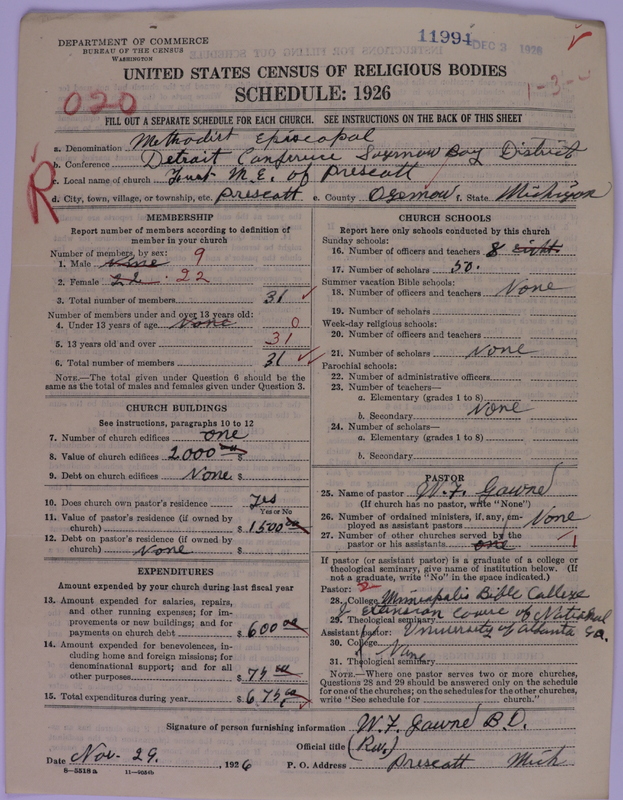 DEPARTMENT OF COMMERCE
BUREAU OF THE CENSUS
WASHINGTON
11994 DEC 3 1926
UNITED STATES CENSUS OF RELIGIOUS BODIES
SCHEDULE: 1926
020
1-3-0
FILL OUT A SEPARATE SCHEDULE FOR EACH CHURCH. SEE INSTRUCTIONS ON THE BACK OF THIS SHEET
R
a. Denomination Methodist Episcopal
b. Conference Detroit Conference Bay District
c. Local name of church First M.E. of Prescott
d. City, town, village, or township, etc. Prescott e. County Ogemaw f. State Michigan
MEMBERSHIP
Report number of members according to definition of
member in your church
Number of members, by sex:
1. Male None 9
2. Female 22 22
3. Total number of members 31
Number of members under and over 13 years old:
4. Under 13 years of age None 0
5. 13 years old and over 31
6. Total number of members 31
NOTE.—The total given under Question 6 should be
same as the total of males and females given under Question 3.
CHURCH BUILDINGS
See instructions, paragraphs 10 to 12
7. Number of church edifices one
8. Value of church edifices 2000 00 $
9. Debt on church edifices None $
10. Does church own pastor's residence Yes
Yes or No
11. Value of pastor's residence (if owned by
church) $ 1500 00
12. Debt on pastor's residence (if owned by
church) None $
EXPENDITURES
Amount expended by your church during last fiscal year
13. Amount expended for salaries, repairs,
and other running expenses; for im-
provements or new buildings; and for
payments on church debt $ 600 00
14. Amount expended for benevolences, in-
cluding home and foreign missions; for
denominational support; and for all
other purposes $ 75 00
15. Total expenditures during year $ 675 00
CHURCH SCHOOLS
Report here only schools conducted by this church
Sunday schools:
16. Number of officers and teachers 8 eight
17. Number of scholars 50.
Summer vacation Bible schools:
18. Number of officers and teachers None
19. Number of scholars
Week-day religious schools:
20. Number of officers and teachers
21. Number of scholars None
Parochial schools:
22. Number of administrative officers
23. Number of teachers—
a. Elementary (grades 1 to 8)
b. Secondary None
24. Number of scholars—
a. Elementary (grades 1 to 8)
b. Secondary
PASTOR
25. Name of pastor W. F. Gawne
(If church has no pastor, write "None")
26. Number of ordained ministers, if any, em-
ployed as assistant pastors None
27. Number of other churches served by the
pastor or his assistants one 1
If pastor (or assistant pastor) is a graduate of a college or
theological seminary, give name of institution below. (If
not a graduate, write "No" in the space indicated.)
Pastor:
28. College Minneapolis Bible College
29. Theological seminary Course of National
Assistant pastor: University of Atlanta Ga.
30. College
31. Theological seminary None
NOTE.—Where one pastor serves two or more churches,
Questions 28 and 29 should be answered only on the schedule
for one of the churches; on the schedules for the other churches,
write "See schedule for church."
Signature of person furnishing information W. F. Gawne B.D.
Official title (Rev.)
Date Nov. 29. , 1926 P. O. Address Prescott Mich
8-5518a 11-9054b